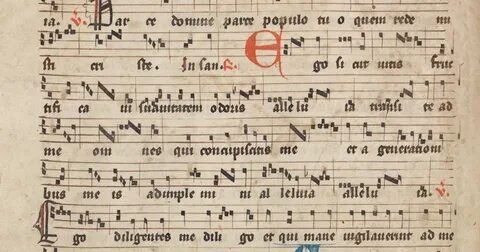 ia. V. Par ce domine parce populo tu o quem rede mi
sti cri ste. In san. R. E go si cut vitis fruc
tifi ca vi suavitatem odoris allelu ia transi te ad
me om nes qui concupiscitis me et a generationi
bus me is adimple mi ni al leluia allelu ia. V.
E go diligentes me dili go et qui mane vigilaverint ad me